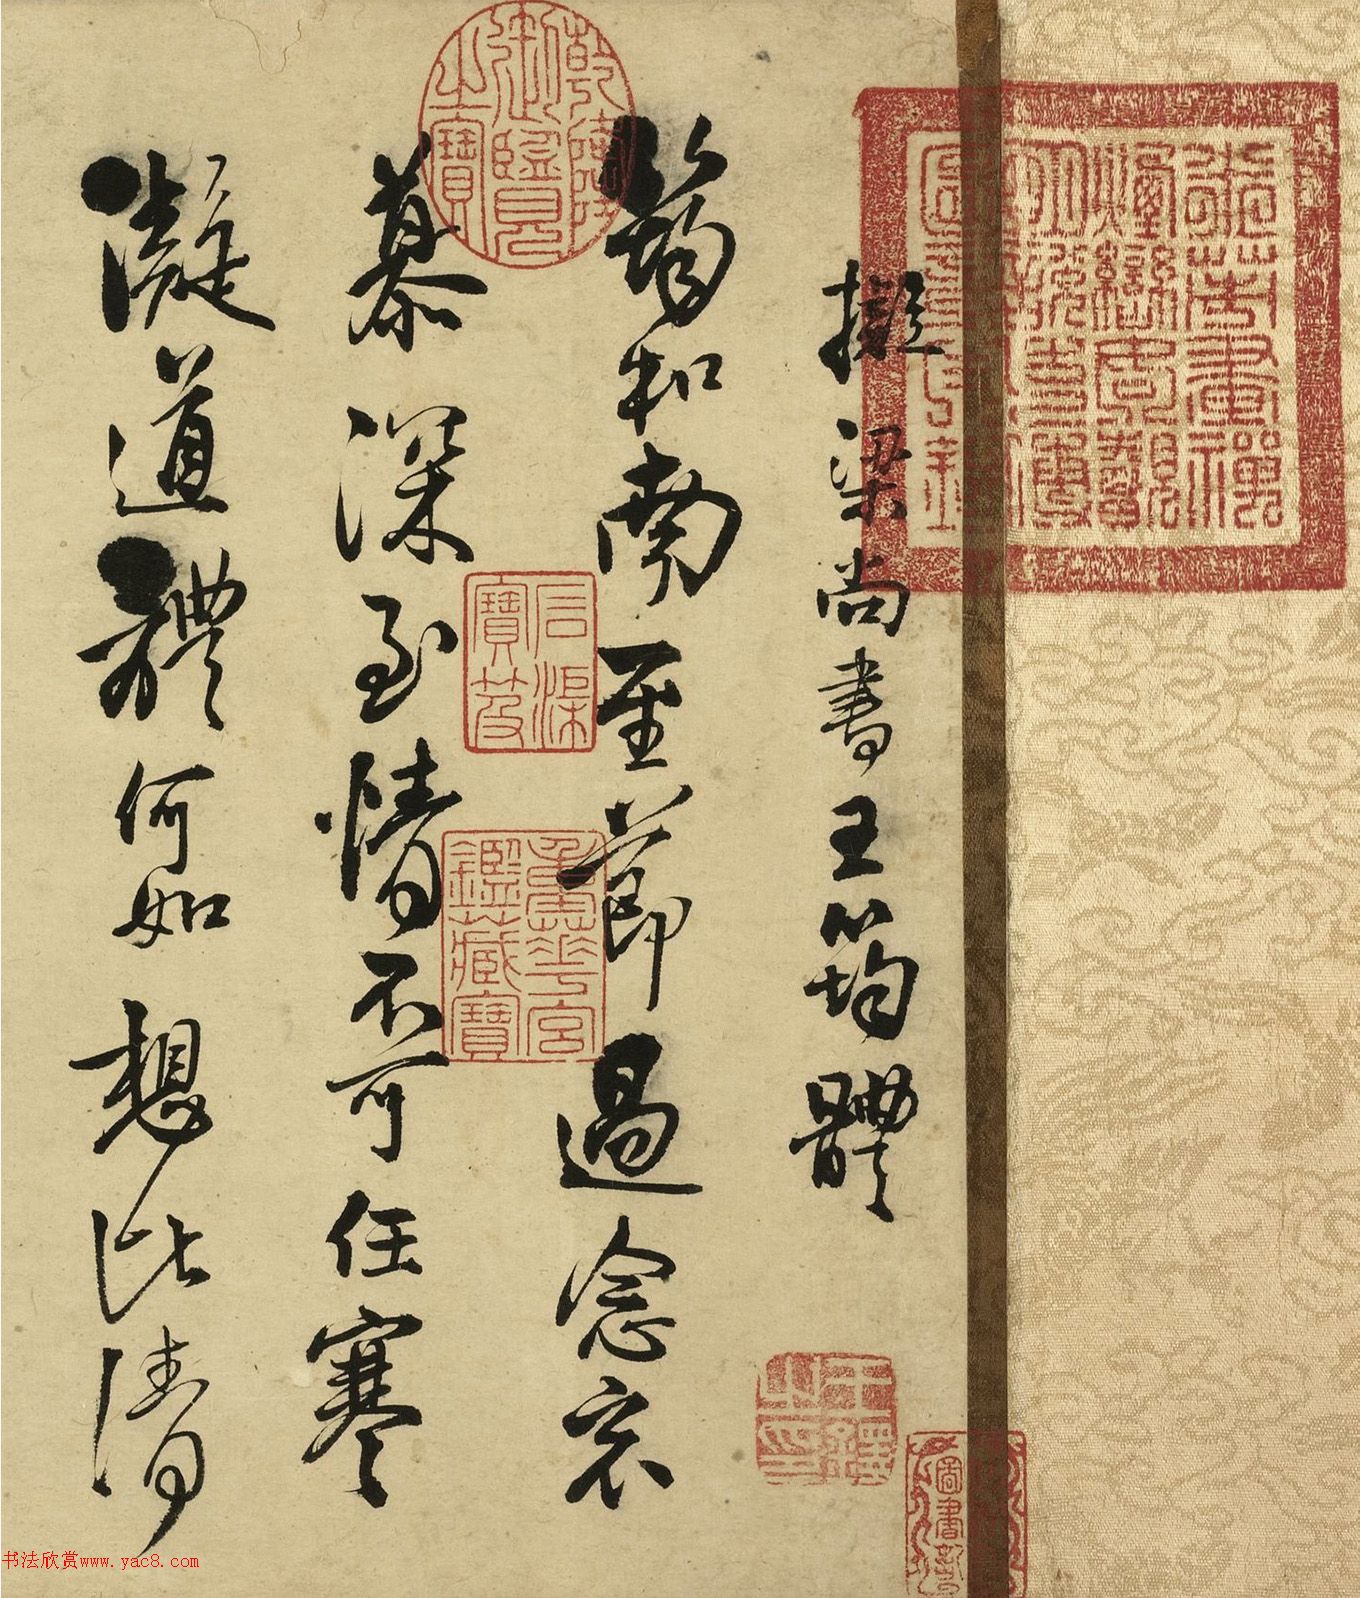 擬梁尚書王筠體
筠和南至節過念哀
慕深至情不可任寒
凝道體何如想比清
乾隆御覽之寶
石渠寶笈
重華宮鑑藏寶
王鐸之印
书法欣赏www.yac8.com